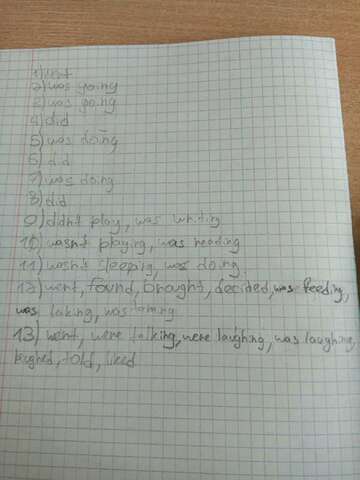 1) went
2) was going
3) was going
4) did
5) was doing
6) did
7) was doing
8) did
9) didn't play, was writing
10) wasn't playing, was reading
11) wasn't sleeping, was doing.
12) went, found, brought, decided, was feeding,
was taking, was taming
13) went, were talking, were laughing, was laughing,
told, liked